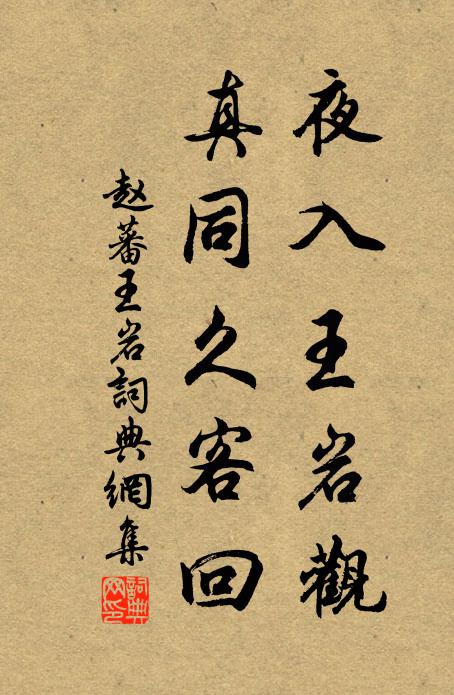 夜入王岩觀
真同久客回
赵蕃王岩詞典網集
詞典网印